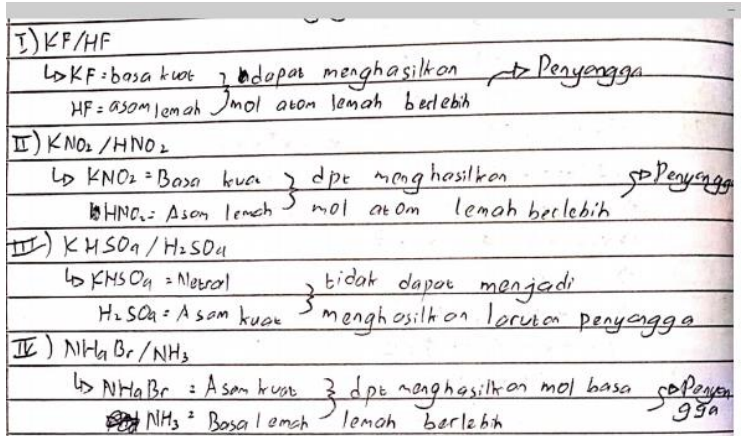 I) KF/HF
↳ KF = basa kuat } dapat menghasilkan → Penyangga
HF = asam lemah } mol atom lemah berlebih
II) KNO₂ / HNO₂
↳ KNO₂ = Basa kua } dpt menghasilkan → Penyangg
HNO₂ = Asam lemah } mol atom lemah berlebih
III) KHSO₄ / H₂SO₄
↳ KHSO₄ = Netral } tidak dapat menjadi
H₂SO₄ = Asam kuat } menghasilkan larutan penyangga
IV) NH₄Br/NH₃
↳ NH₄Br = Asam kuat } dpt menghasilkan mol basa → Penyan
NH₃ = Basa lemah } lemah berlebih gga